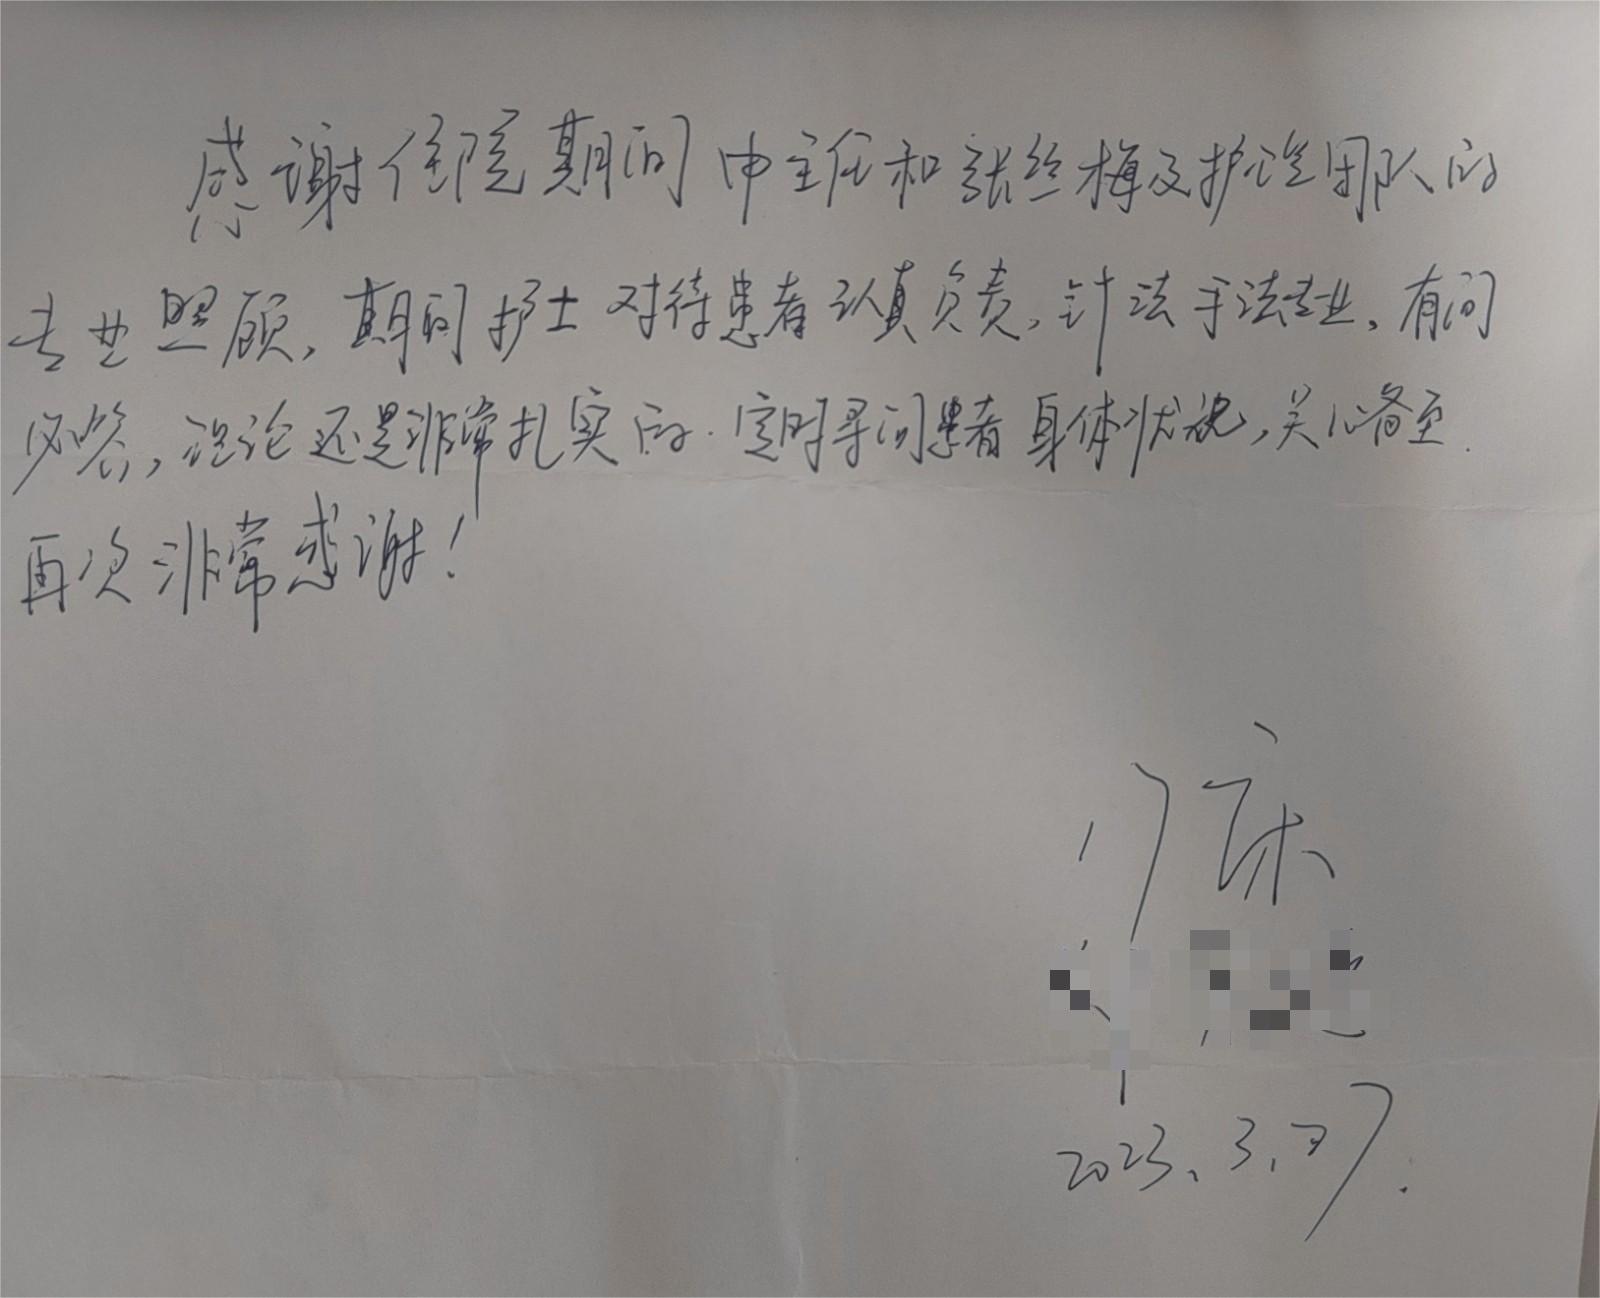 感谢住院期间申主任和张丝梅及护理团队的
专业照顾,期间护士对待患者认真负责,针法手法专业,有问
必答,理论还是非常扎实的.定时寻问患者身体状况,关心备至.
再次非常感谢!
17床
2023.3.27.